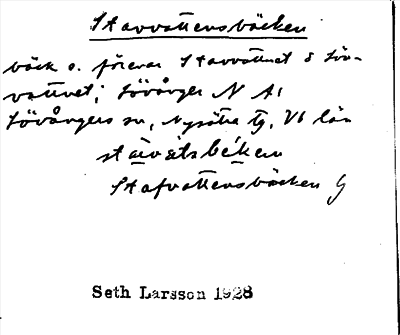 Stavvattensbäcken
bäck o. förenar Stavvattnet o Löv-
vattnet; Lövånger N A1
Lövångers sn, Nysätra tg, Vb län
Stafvattensbäcken G
Seth Larsson 1928